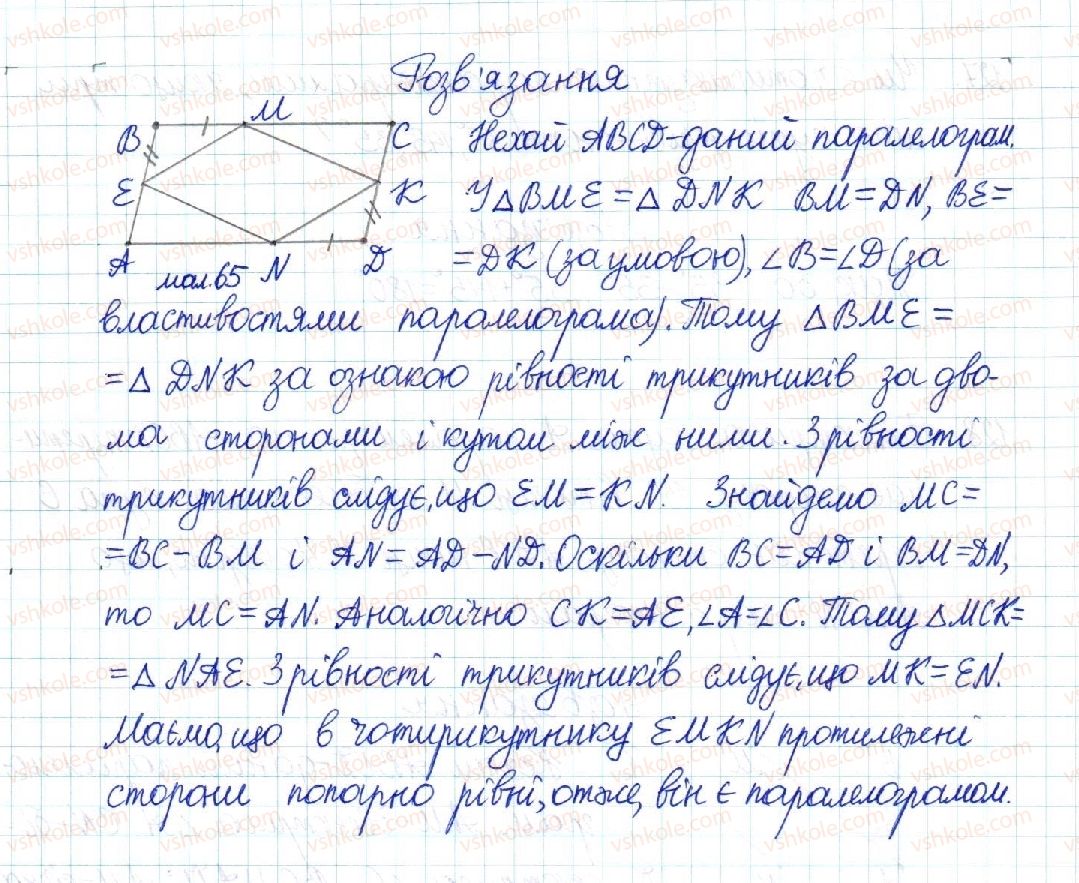 Розв'язання
B M C
E K
A мал.65 N D
Нехай ABCD-даний паралелограм.
У △BME = △DNK BM = DN, BE =
= DK (за умовою), ∠B=∠D (за
властивостями паралелограма). Тому △BME =
= △DNK за ознакою рівності трикутників за дво-
ма сторонами і кутом між ними. З рівності
трикутників слідує, що EM = KN. Знайдемо MC =
= BC - BM і AN = AD - ND. Оскільки BC = AD і BM = DN,
то MC = AN. Аналогічно CK = AE, ∠A=∠C. Тому △MCK=
= △NAE. З рівності трикутників слідує, що MK = EN.
Маємо, що в чотирикутнику EMKN протилежні
сторони попарно рівні, отже, він є паралелограмом.
vshkole.com